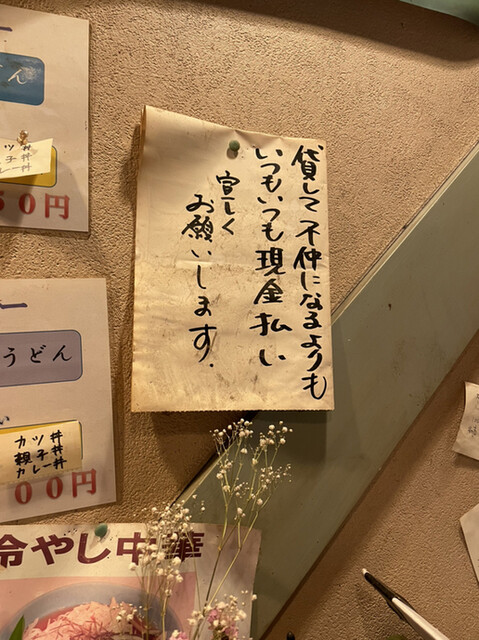 貸して不仲になるよりも
いつもいつも現金払い
宜しく
お願いします.
うどん
カツ丼
親子丼
カレー丼
00円
50円
冷やし中華